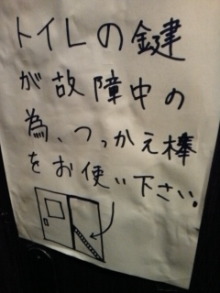 トイレの鍵
が故障中の
為、つっかえ棒
をお使い下さい。